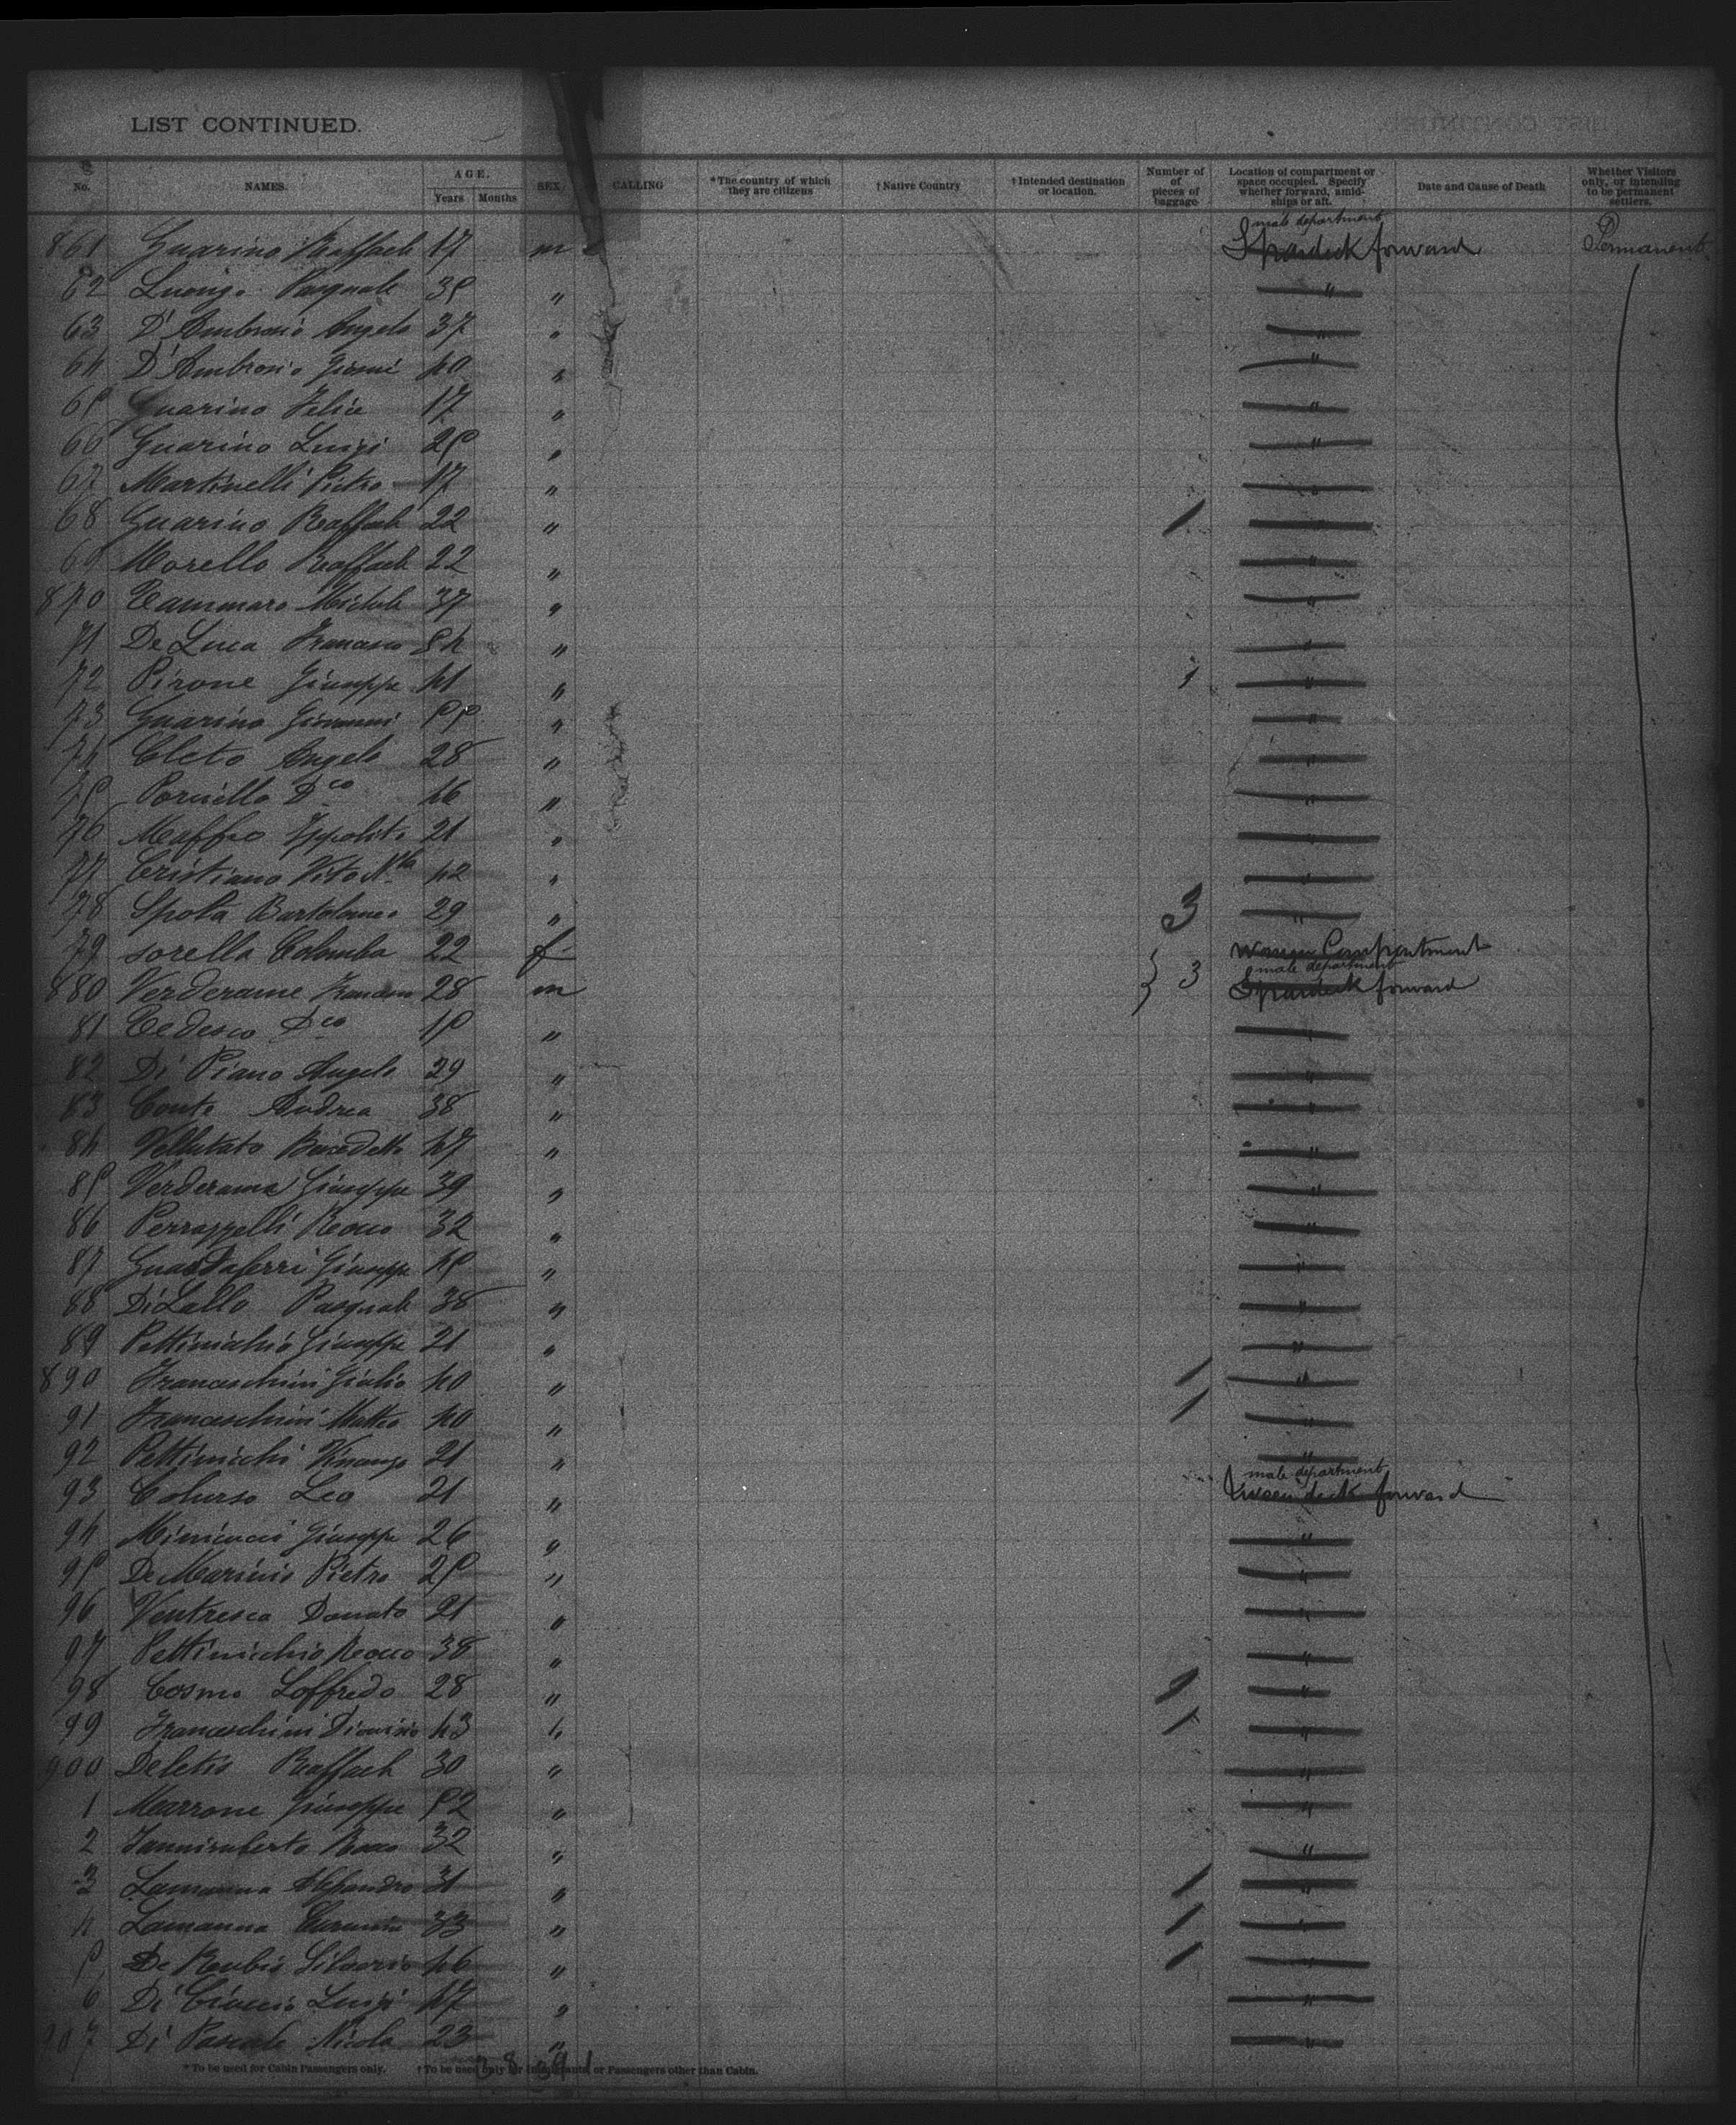 LIST CONTINUED.
No. NAMES. AGE. Years Months SEX CALLING *The country of which they are citizens †Native Country †Intended destination or location. Number of pieces of baggage Location of compartment or space occupied. Specify whether forward, amidships or aft. Date and Cause of Death Whether Visitors only, or intending to be permanent settlers.
male department
861 Guarino Raffaele 17 m Spardeck forward Permanent
62 Luongo Pasquale 35 " "
63 D'Ambrosio Angelo 37 " "
64 D'Ambrosio 40 " "
65 Guarino Felice 17 " "
66 Guarino Luigi 25 " "
67 Martinelli Pietro 17 " "
68 Guarino Raffaele 22 " / "
69 Morello Raffaele 22 " "
870 Tammaro Michele 37 " "
71 De Luca Francesco 54 " "
72 Pirone Giuseppe 41 " 1 "
73 Guarino Giovanni 55 " "
74 Cleto Angelo 28 " "
75 D.co 46 " "
76 Maffeo Ippolito 21 " "
77 Cristiano Vito 42 " "
78 Spota Bartolomeo 29 " 3 "
79 sorella Colomba 22 f Women Compartment
male department
880 Verderame Francesco 28 m 3 Spardeck forward
81 Tedesco D.co 15 " "
82 Di Piano Angelo 29 " "
83 Conte Andrea 38 " "
84 Vellutato Benedetto 47 " "
85 Verderame Giuseppe 39 " "
86 Rocco 32 " "
87 Guastaferri Giuseppe 45 " "
88 Di Lallo Pasquale 38 " "
89 Pettinicchio Giuseppe 21 " "
890 Franceschini Giulio 40 " / "
91 Franceschini Matteo 40 " / "
92 Pettinicchi Vincenzo 21 " "
male department
93 Coluzso Leo 21 " deck forward
94 Giuseppe 26 " "
95 De Marinis Pietro 25 " "
96 Ventresca Donato 21 " "
97 Pettinicchio Rocco 38 " "
98 Cosmo Loffredo 28 " / "
99 Franceschini Dionisio 43 " / "
900 Deletis Raffaele 30 " "
1 Marrone Giuseppe 52 " "
2 Rocco 32 " "
3 Lamanna 31 " / "
4 Lamanna 33 " / "
5 De Rubis Silverio 46 " / "
6 Di Ciaccio Luigi 47 " "
907 Di Pascale Nicola 23 " "
*To be used for Cabin Passengers only. †To be used only for Immigrants or Passengers other than Cabin.